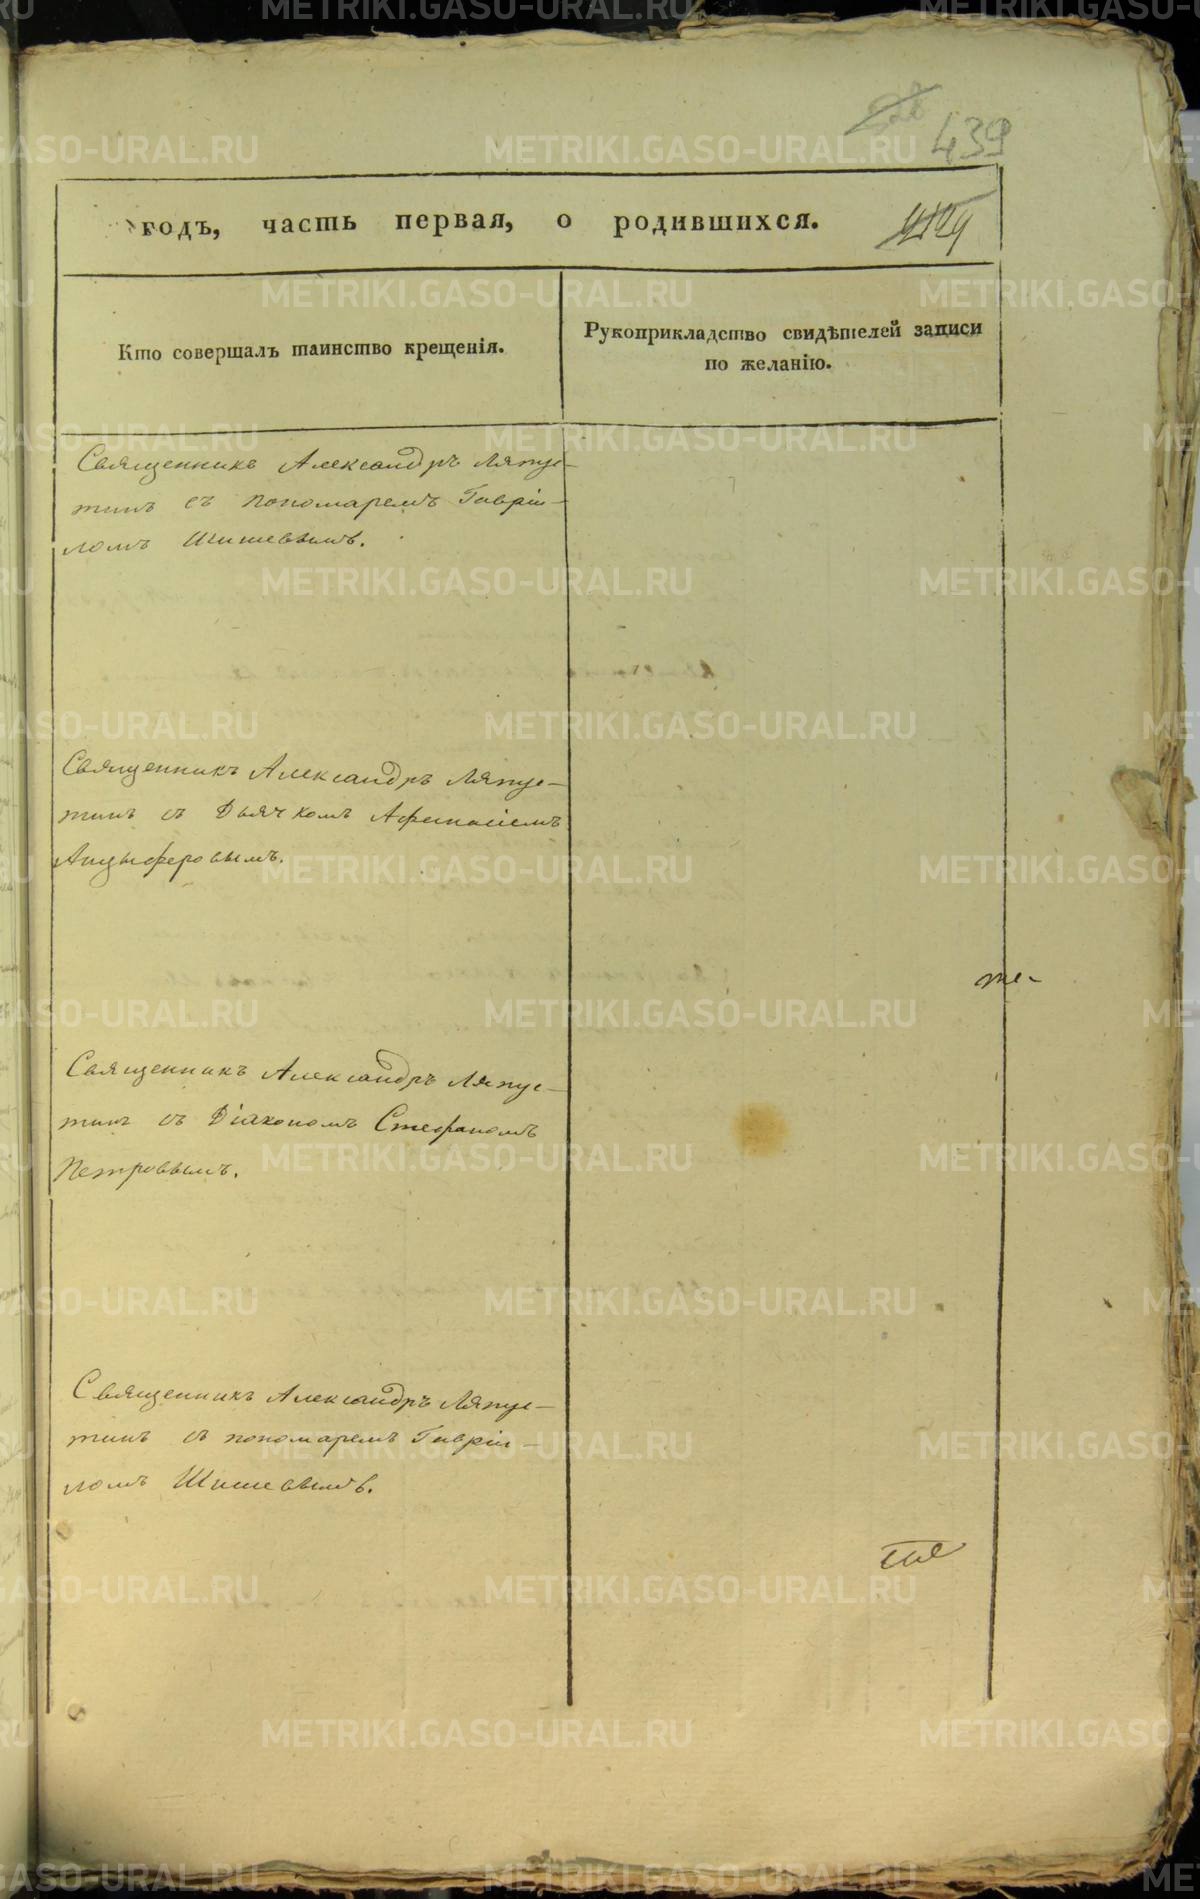 439
годъ, часть первая, о родившихся.
Кто совершалъ таинство крещенія.
Рукоприкладство свидѣтелей записи
по желанію.
Священникъ Александръ Ляпус-
тинъ съ пономаремъ Гаврiи-
ломъ Шишевымъ.
Священникъ Александръ Ляпус-
тинъ съ Дьячкомъ Афанасіемъ
Анцыферовымъ.
же-
Священникъ Александръ Ляпус-
тинъ съ Діакономъ Стефаномъ
Петровымъ.
Священникъ Александръ Ляпус-
тинъ съ пономаремъ Гавріи-
ломъ Шишевымъ.
METRIKI.GASO-URAL.RU